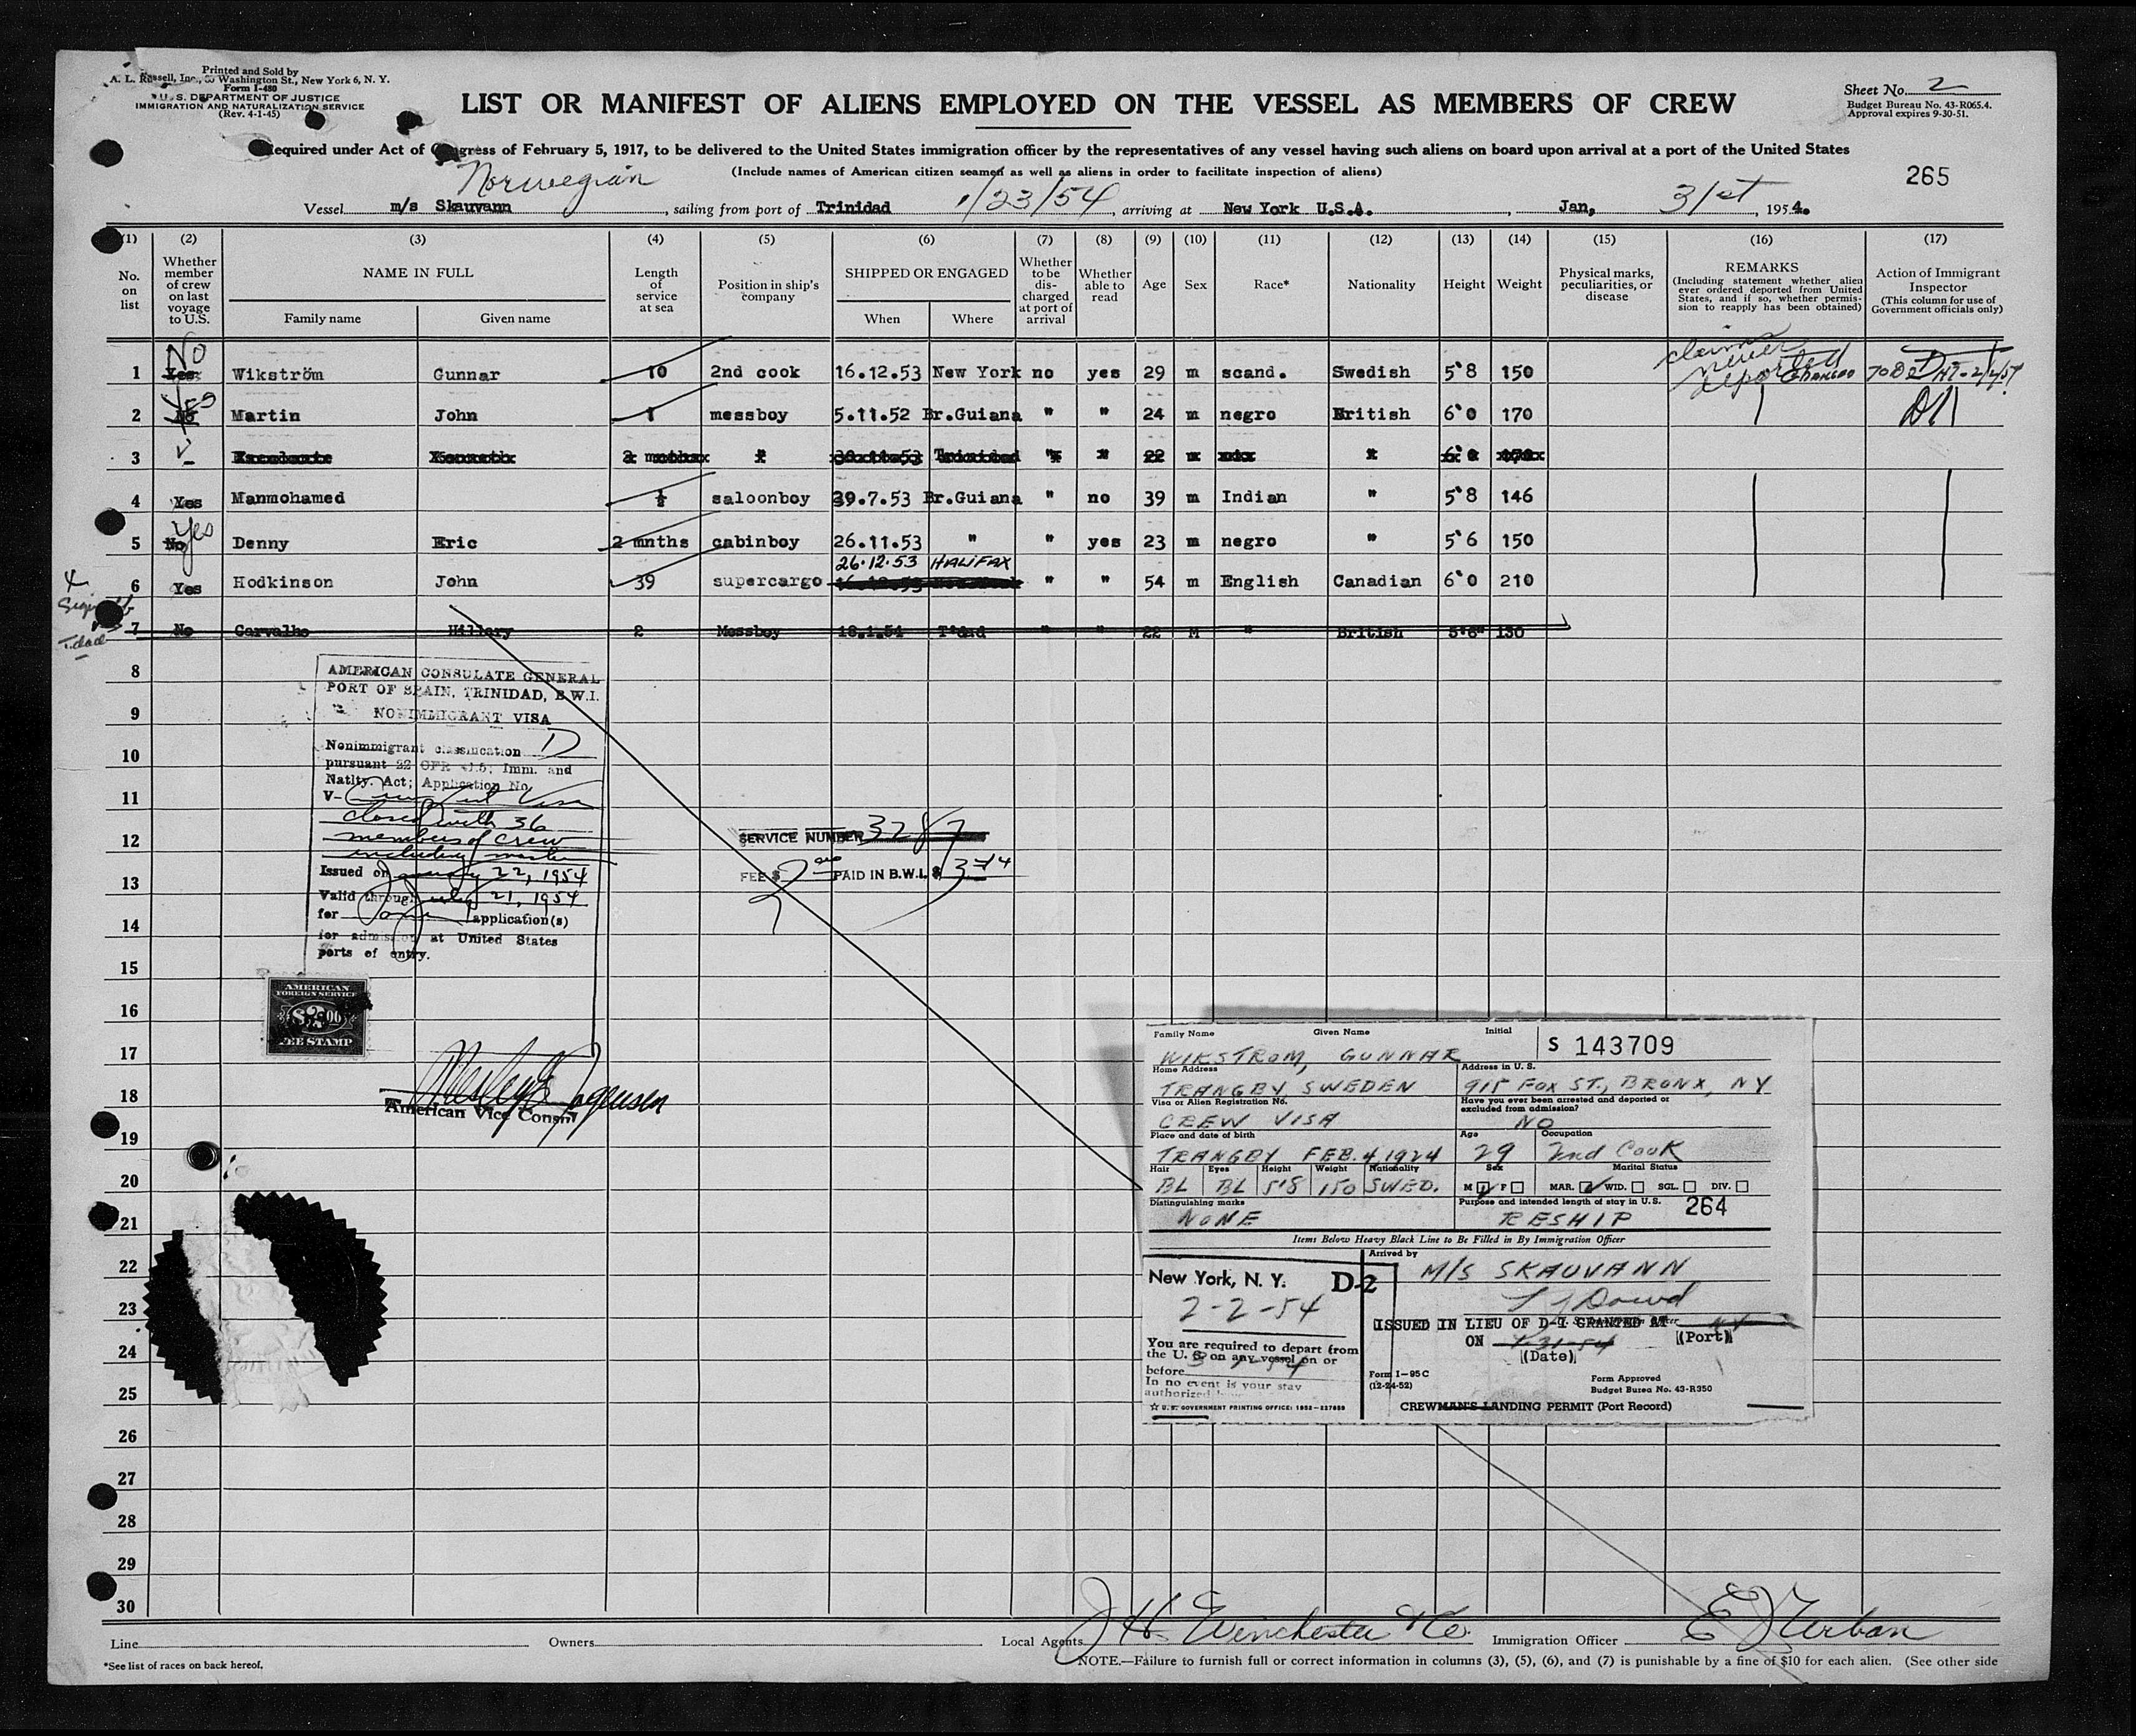 Printed and Sold by
A. L. Russell, Inc., Washington St., New York 6, N. Y.
Form I-480
U. S. DEPARTMENT OF JUSTICE
IMMIGRATION AND NATURALIZATION SERVICE
(Rev. 4-1-45)
LIST OR MANIFEST OF ALIENS EMPLOYED ON THE VESSEL AS MEMBERS OF CREW
Sheet No. 2
Budget Bureau No. 43-R065.4.
Approval expires 9-30-51.
Required under Act of Congress of February 5, 1917, to be delivered to the United States immigration officer by the representatives of any vessel having such aliens on board upon arrival at a port of the United States
(Include names of American citizen seamen as well as aliens in order to facilitate inspection of aliens)
265
Norwegian
Vessel m/s Skauvann, sailing from port of Trinidad 1/23/54, arriving at New York U.S.A., Jan, 31st, 1954.
(1) (2) (3) (4) (5) (6) (7) (8) (9) (10) (11) (12) (13) (14) (15) (16) (17)
No. on list
Whether member of crew on last voyage to U.S.
NAME IN FULL
Family name
Given name
Length of service at sea
Position in ship's company
SHIPPED OR ENGAGED
When
Where
Whether to be discharged at port of arrival
Whether able to read
Age
Sex
Race*
Nationality
Height
Weight
Physical marks, peculiarities, or disease
REMARKS
(Including statement whether alien ever ordered deported from United States, and if so, whether permission to reapply has been obtained)
Action of Immigrant Inspector
(This column for use of Government officials only)
No
claims never deported
1 Yes Wikström Gunnar 10 2nd cook 16.12.53 New York no yes 29 m scand. Swedish 5'8 150 changed to D2
Yes
2 No Martin John 1 messboy 5.11.52 Br.Guiana " " 24 m negro British 6'0 170 D1
3 2 " 22 "
4 Yes Manmohamed ½ saloonboy 29.7.53 Br.Guiana " no 39 m Indian " 5'8 146
Yes
5 No Denny Eric 2 mnths cabinboy 26.11.53 " " yes 23 m negro " 5'6 150
26.12.53 HALIFAX
6 Yes Hodkinson John 39 supercargo " " 54 m English Canadian 6'0 210
7 No Carvalho Hillary 2 Messboy 18.1.54 T'dad " " 22 M " British 5'6" 130
8
AMERICAN CONSULATE GENERAL
PORT OF SPAIN, TRINIDAD, B.W.I.
NONIMMIGRANT VISA
9
Nonimmigrant classification D
10
pursuant 22 CFR 41.5; Imm. and
Natlty. Act; Application No.
V- Crew List Visa
11
closed with 36
members of crew
including master
12
SERVICE NUMBER 3287
FEE $ 2.00 PAID IN B.W.I. $ 3.44
Issued on January 22, 1954
13
Valid through July 21, 1954
for one application(s)
14
for admission at United States
ports of entry.
15
AMERICAN
FOREIGN SERVICE
$2.00
FEE STAMP
16
17
18
American Vice Consul
19
20
21
22
23
24
25
26
27
28
29
30
Family Name Given Name Initial
WIKSTROM, GUNNAR
S 143709
Home Address
TRANGBY SWEDEN
Address in U. S.
915 FOX ST., BRONX, NY
Visa or Alien Registration No.
CREW VISA
Have you ever been arrested and deported or excluded from admission?
NO
Place and date of birth
TRANGBY FEB. 4, 1924
Age
29
Occupation
2nd COOK
Hair Eyes Height Weight Nationality
BL BL 5'8 150 SWED.
Sex
M F
Marital Status
MAR. WID. SGL. DIV.
Distinguishing marks
NONE
Purpose and intended length of stay in U. S.
264
RESHIP
Items Below Heavy Black Line to Be Filled in By Immigration Officer
New York, N. Y. D-2
2-2-54
You are required to depart from
the U. S. on any vessel on or
before
In no event is your stay
authorized
☆ U. S. GOVERNMENT PRINTING OFFICE: 1952
Arrived by
M/S SKAUVANN
ISSUED IN LIEU OF D-1 GRANTED AT NY (Port)
ON 1-31-54
(Date)
Form I-95C
(12-24-52)
Form Approved
Budget Bureau No. 43-R350
CREWMAN'S LANDING PERMIT (Port Record)
Line Owners Local Agents J H Winchester & Co. Immigration Officer E J Urban
*See list of races on back hereof.
NOTE.—Failure to furnish full or correct information in columns (3), (5), (6), and (7) is punishable by a fine of $10 for each alien. (See other side